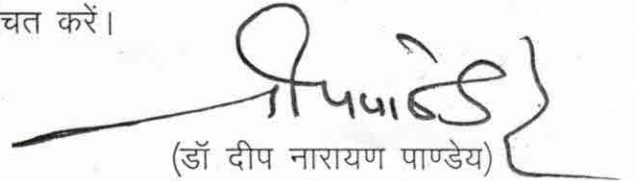 चत करें।
(डॉ दीप नारायण पाण्डेय)